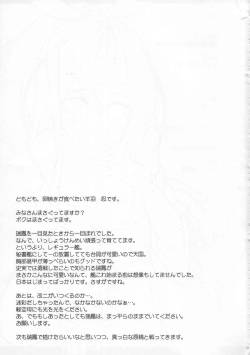 ともども、卵焼きが食べたい羊羽 忍です。
みなさんまさぐってますか？
ボクはまさぐってます。
瑞鳳を一目見たときから一目ぼれでした。
なんで、いっしょうけんめい頑張って育ててます。
ようやく、レギュラー艦。
秘書艦にして一の放置しててもが可愛いので大国。
胸部装甲が薄っぺらいのもグッドですね。
史実では勇戦したことで知られる瑞鳳が
まさかこんなに可愛いなんて、艦これ始まる前は想像もしてませんでした。
日本はじまってばっかりです。さすがですね。
あとは、改二がいつくるのか…。
迷彩だしちゃったんで、なかなかないのかなぁ…。
航空母にも光を光をください。
あ、でももしあったとしても瑞鳳は、まっ平らのままでいてください。
お願いします。
次も瑞鳳で描けたらいいなと思いつつ、真っ白な原稿と戦ってきます。